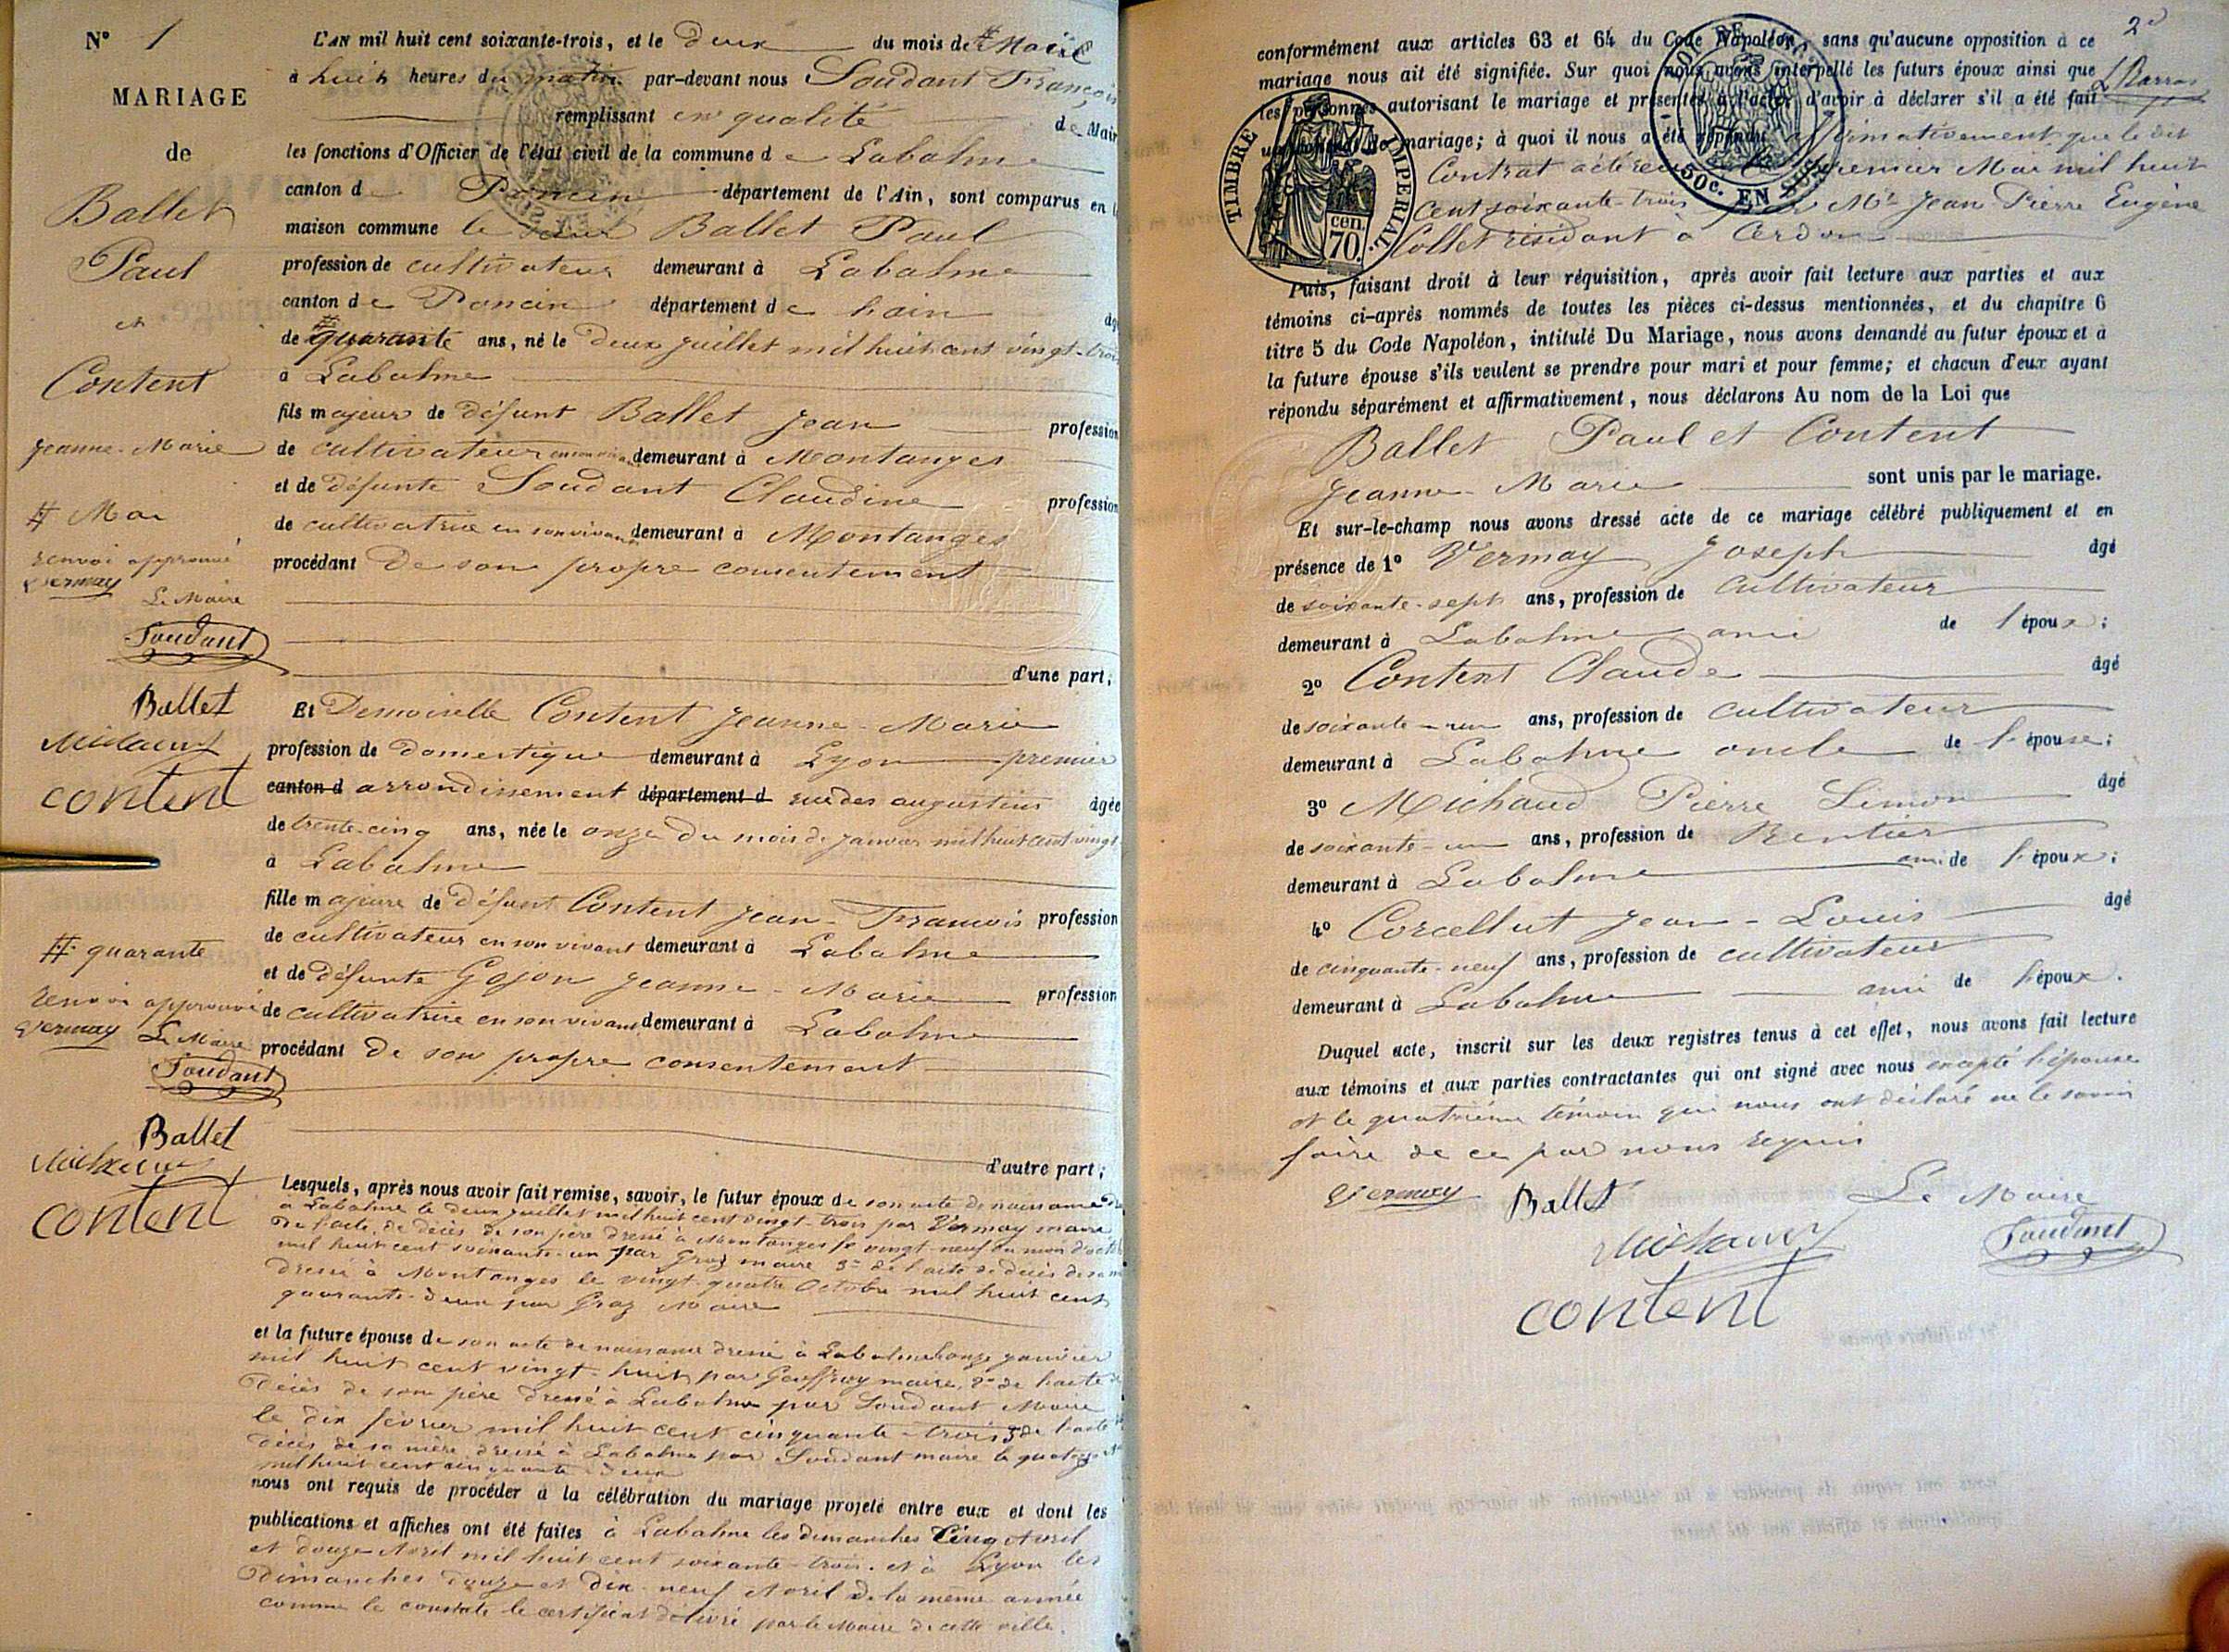 N° 1
MARIAGE
de
Ballet
Paul
et
Content
Jeanne-Marie
# Mai
renvoi approuvé
Vermay
Le Maire
Soudant
Ballet
Michaud
content
# quarante
renvoi approuvé
Vermay Le Maire
Soudant
Ballet
Michaud
content
L'AN mil huit cent soixante-trois, et le deux du mois de #
à huit heures du matin par-devant nous Soudant François
remplissant en qualité de Maire
les fonctions d'Officier de l'état civil de la commune de Labalme
canton de Poncin département de l'Ain, sont comparus en la
maison commune le sieur Ballet Paul
profession de cultivateur demeurant à Labalme
canton de Poncin département de hain âgé
de # quarante ans, né le deux juillet mil huit cent vingt-trois
à Labalme
fils majeur de défunt Ballet Jean profession
de cultivateur en son vivant demeurant à Montanges
et de défunte Soudant Claudine profession
de cultivatrice en son vivant demeurant à Montanges
procédant de son propre consentement
d'une part;
Et Demoiselle Content Jeanne-Marie
profession de domestique demeurant à Lyon premier
canton d arrondissement département d rue des augustins âgée
de trente-cinq ans, née le onze du mois de janvier mil huit cent vingt
à Labalme
fille majeure de défunt Content Jean-François profession
de cultivateur en son vivant demeurant à Labalme
et de défunte Gojon Jeanne-Marie profession
de cultivatrice en son vivant demeurant à Labalme
procédant de son propre consentement
d'autre part;
Lesquels, après nous avoir fait remise, savoir, le futur époux de son acte de naissance
à Labalme le deux juillet mil huit cent vingt-trois par Vermay maire
de l'acte de décès de son père dressé à Montanges le vingt-neuf du mois d'octobre
mil huit cent soixante-un par Graz maire 3° de l'acte de décès de sa
dressé à Montanges le vingt-quatre Octobre mil huit cent
quarante-deux par Graz Maire
et la future épouse de son acte de naissance dressé à Labalme le onze janvier
mil huit cent vingt-huit par Geoffray maire, 2° de l'acte de
décès de son père dressé à Labalme par Soudant Maire
le dix février mil huit cent cinquante-trois 3° de l'acte de
décès de sa mère dressé à Labalme par Soudant maire le quatorze
mil huit cent cinquante-deux
nous ont requis de procéder à la célébration du mariage projeté entre eux et dont les
publications et affiches ont été faites à Labalme les dimanches Cinq Avril
et douze Avril mil huit cent soixante-trois. et à Lyon les
Dimanches douze et dix-neuf Avril de la même année
comme le constate le certificat délivré par le Maire de cette ville.
2d
conformément aux articles 63 et 64 du Code Napoléon, sans qu'aucune opposition à ce
mariage nous ait été signifiée. Sur quoi nous avons interpellé les futurs époux ainsi que
les personnes autorisant le mariage et présentes à l'acte, d'avoir à déclarer s'il a été fait
un contrat de mariage; à quoi il nous a été répondu affirmativement que le dit
Contrat a été premier Mai mil huit
Cent soixante-trois par Me Jean Pierre Eugène
Collet résidant à Cerdon
TIMBRE IMPERIAL.
cen. 70.
50c. EN SUS
Puis, faisant droit à leur réquisition, après avoir fait lecture aux parties et aux
témoins ci-après nommés de toutes les pièces ci-dessus mentionnées, et du chapitre 6
titre 5 du Code Napoléon, intitulé Du Mariage, nous avons demandé au futur époux et à
la future épouse s'ils veulent se prendre pour mari et pour femme; et chacun d'eux ayant
répondu séparément et affirmativement, nous déclarons Au nom de la Loi que
Ballet Paul et Content
Jeanne-Marie sont unis par le mariage.
Et sur-le-champ nous avons dressé acte de ce mariage célébré publiquement et en
présence de 1° Vermay Joseph âgé
de soixante-sept ans, profession de cultivateur
demeurant à Labalme ami de l'époux;
2° Content Claude âgé
de soixante-un ans, profession de cultivateur
demeurant à Labalme oncle de l'épouse;
3° Michaud Pierre Simon âgé
de soixante-un ans, profession de Rentier
demeurant à Labalme ami de l'époux;
4° Corcellut Jean-Louis âgé
de cinquante-neuf ans, profession de cultivateur
demeurant à Labalme ami de l'époux.
Duquel acte, inscrit sur les deux registres tenus à cet effet, nous avons fait lecture
aux témoins et aux parties contractantes qui ont signé avec nous excepté l'épouse
et le quatrième témoin qui nous ont déclaré ne le savoir
faire de ce par nous requis
Vermay Ballet Le Maire
Michaud Soudant
content